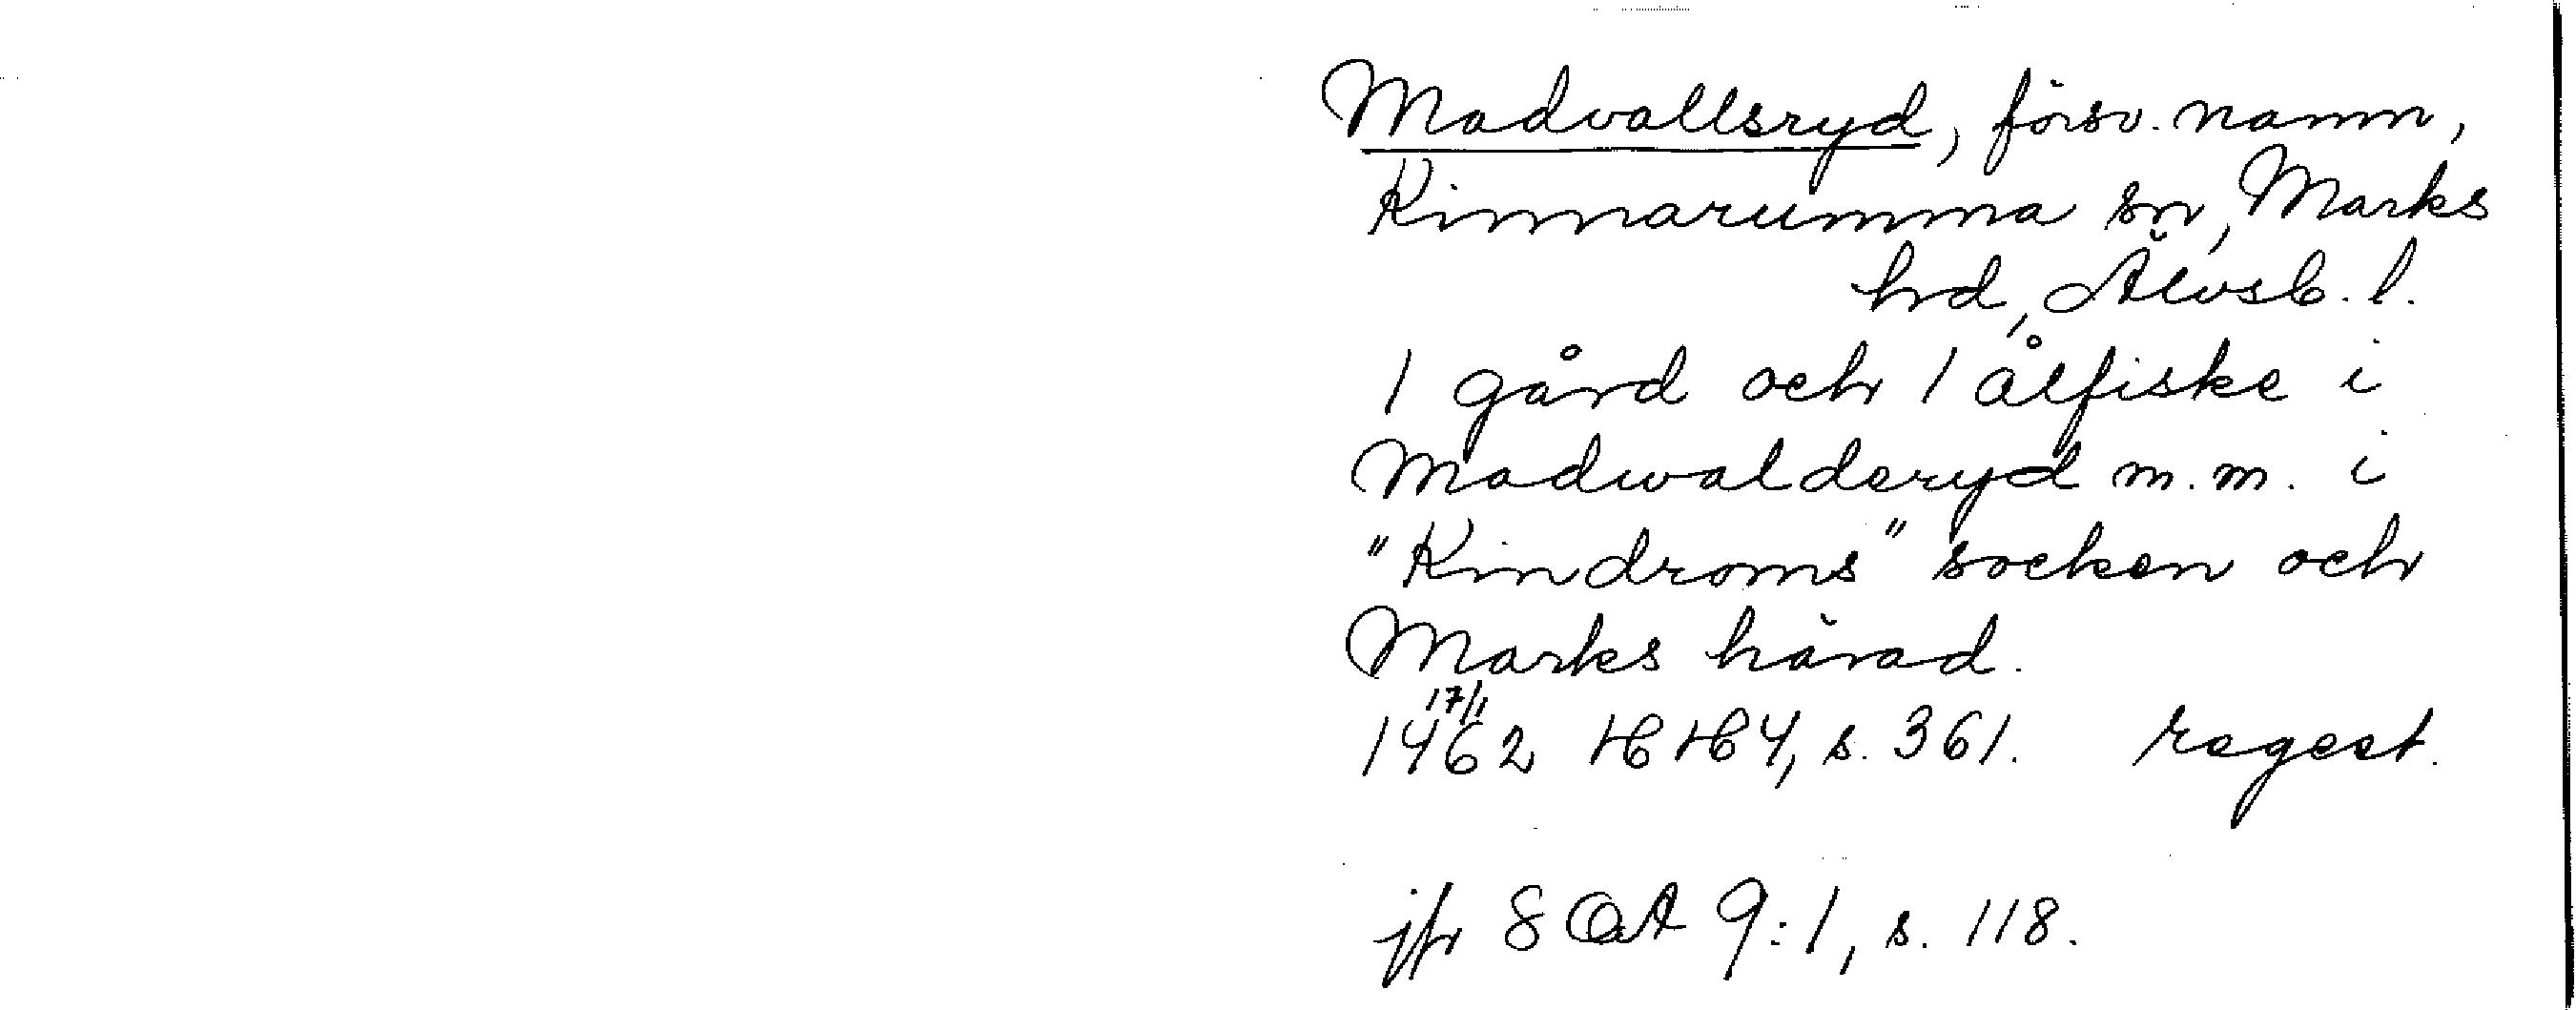 Madvallsryd, försv. namn,
Kinnarumma sn, Marks
hd, Älvsb. l.
1 gård och 1 ålfiske i
Madwalderyd m.m. i
"Kindroms" socken och
Marks härad.
17/1
1462 HH 4, s. 361. regest.
jfr SOÄ 9:1, s. 118.